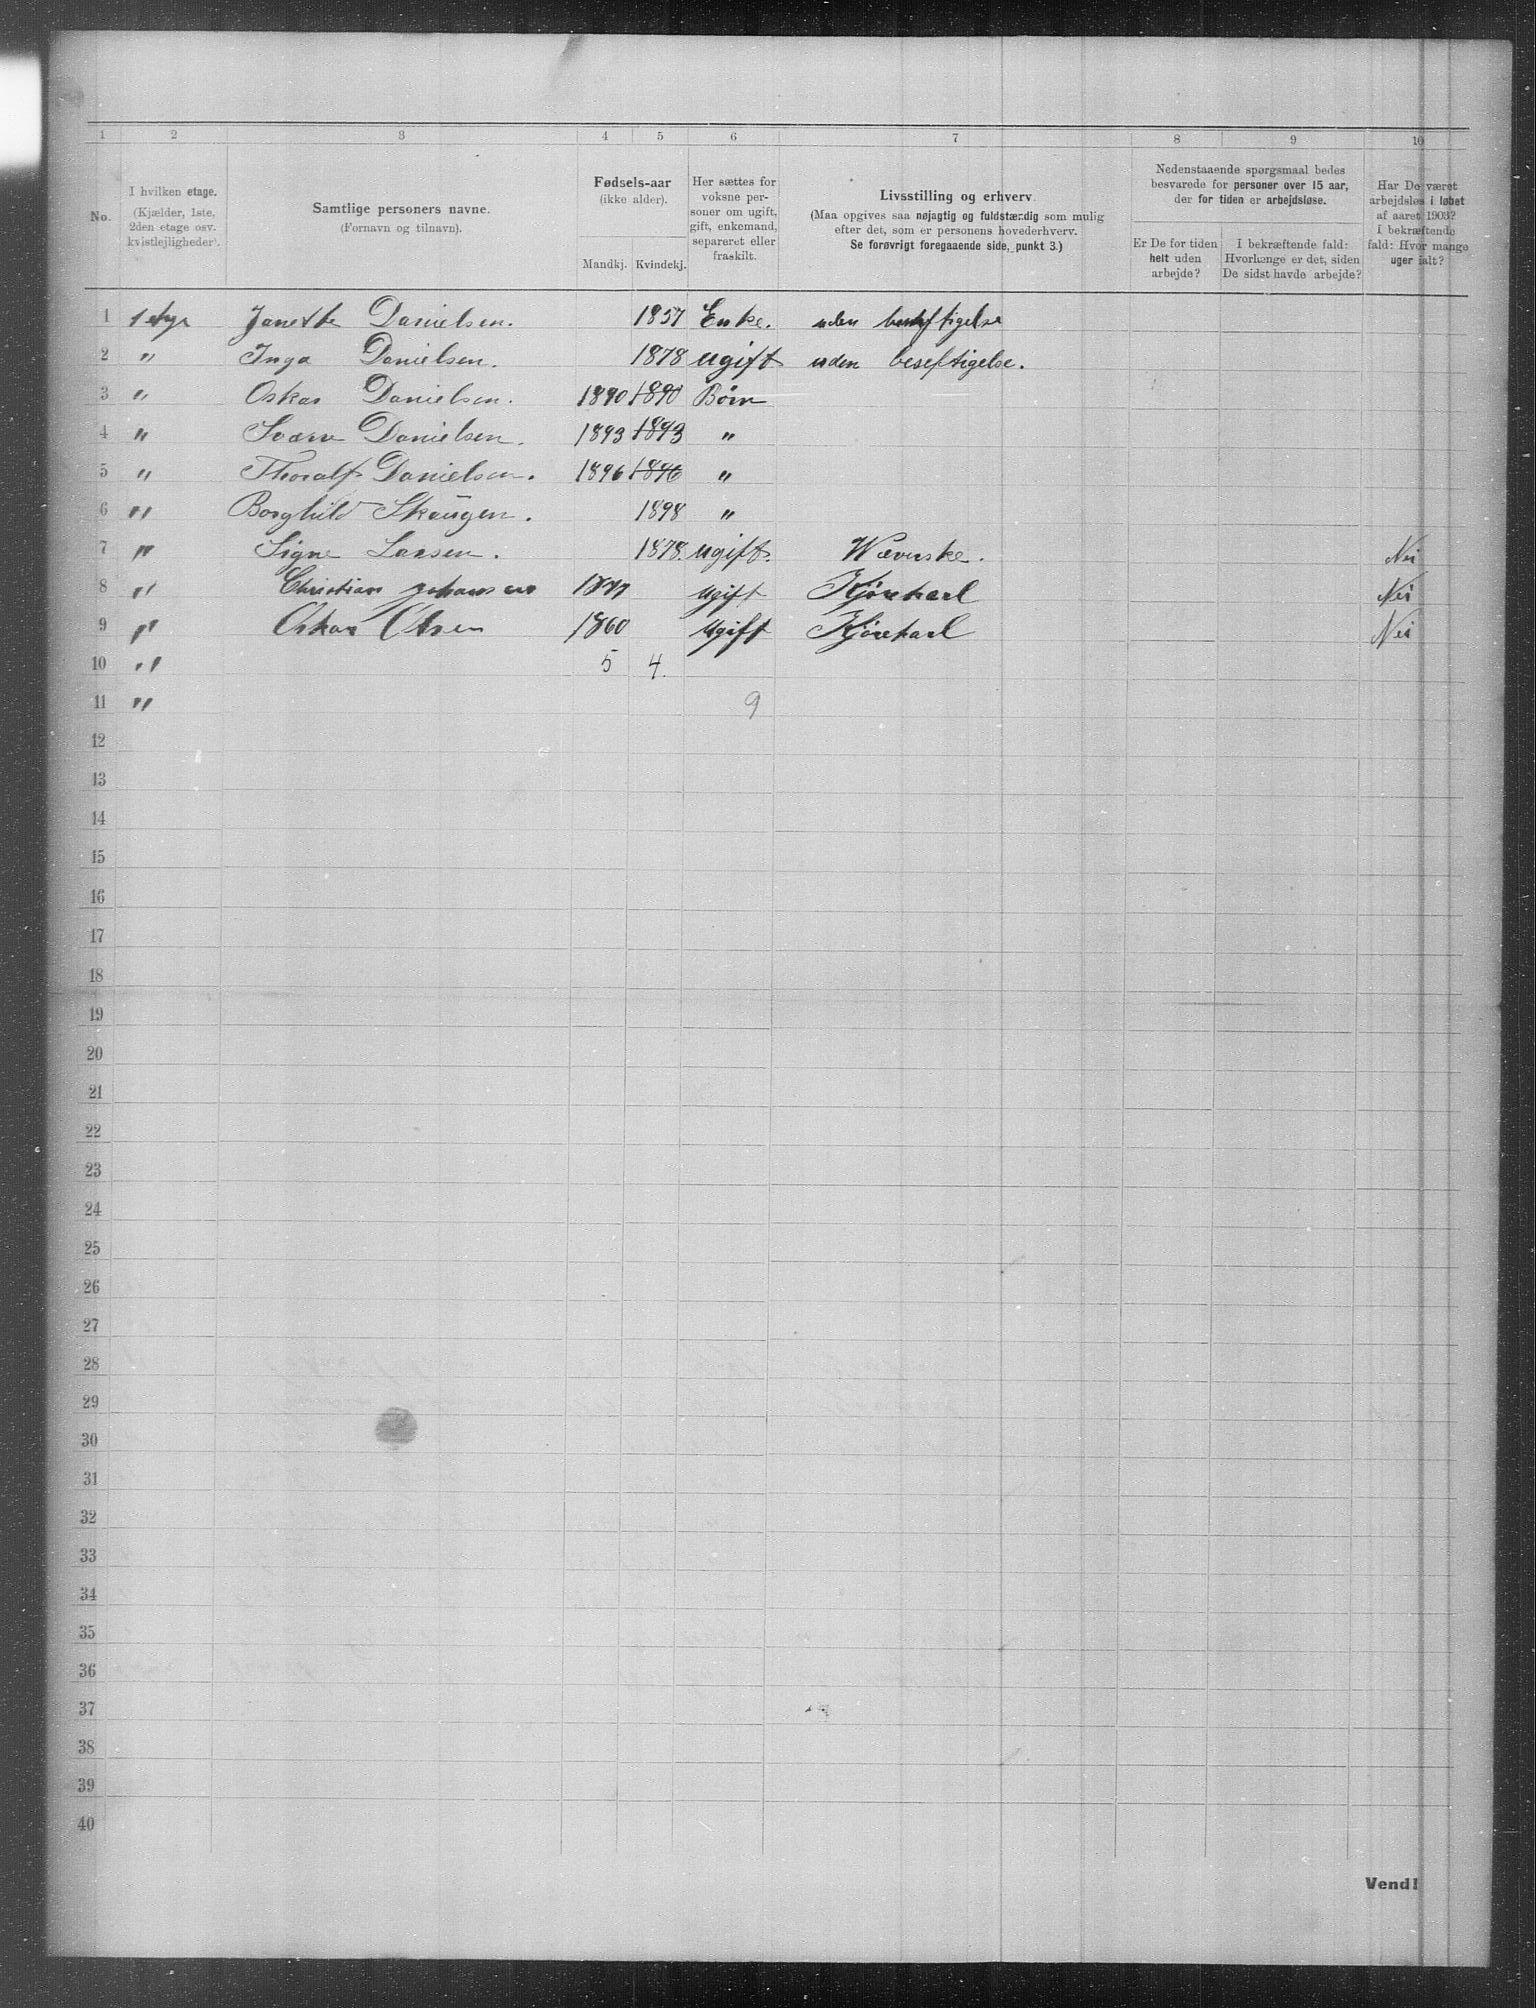 1 2 3 4 5 6 7 8 9 10
No.
I hvilken etage.
(Kjælder, 1ste,
2den etage osv.
kvistlejligheder).
Samtlige personers navne.
(Fornavn og tilnavn).
Fødsels-aar
(ikke alder).
Mandkj. Kvindekj.
Her sættes for
voksne per-
soner om ugift,
gift, enkemand,
separeret eller
fraskilt.
Livsstilling og erhverv
(Maa opgives saa nøjagtig og fuldstændig som mulig
efter det, som er personens hovederhverv.
Se forøvrigt foregaaende side, punkt 3.)
Nedenstaaende spørgsmaal bedes
besvarede for personer over 15 aar,
der for tiden er arbejdsløse.
Er De for tiden
helt uden
arbejde?
I bekræftende fald:
Hvorlænge er det, siden
De sidst havde arbejde?
Har De været
arbejdsløs i løbet
af aaret 1903?
I bekræftende
fald: Hvor mange
uger ialt?
1 Janette Danielsen. 1857 Enke. uden
2 " Inga Danielsen. 1878 ugift uden beseftigelse.
3 " Oskar Danielsen. 1890 1890 Børn
4 " Sværre Danielsen. 1893 1893 "
5 " Thoralf Danielsen. 1896 1896 "
6 " Borghild Skaugen. 1898 "
7 " Signe Larsen. 1878. ugift. Næi
8 " Christian Johansen ugift Kjørekarl Nei
9 " Oskar Olsen 1860 Ugift Kjørekarl Nei
10 " 5 4.
11 " 9
12
13
14
15
16
17
18
19
20
21
22
23
24
25
26
27
28
29
30
31
32
33
34
35
36
37
38
39
40
Vend!